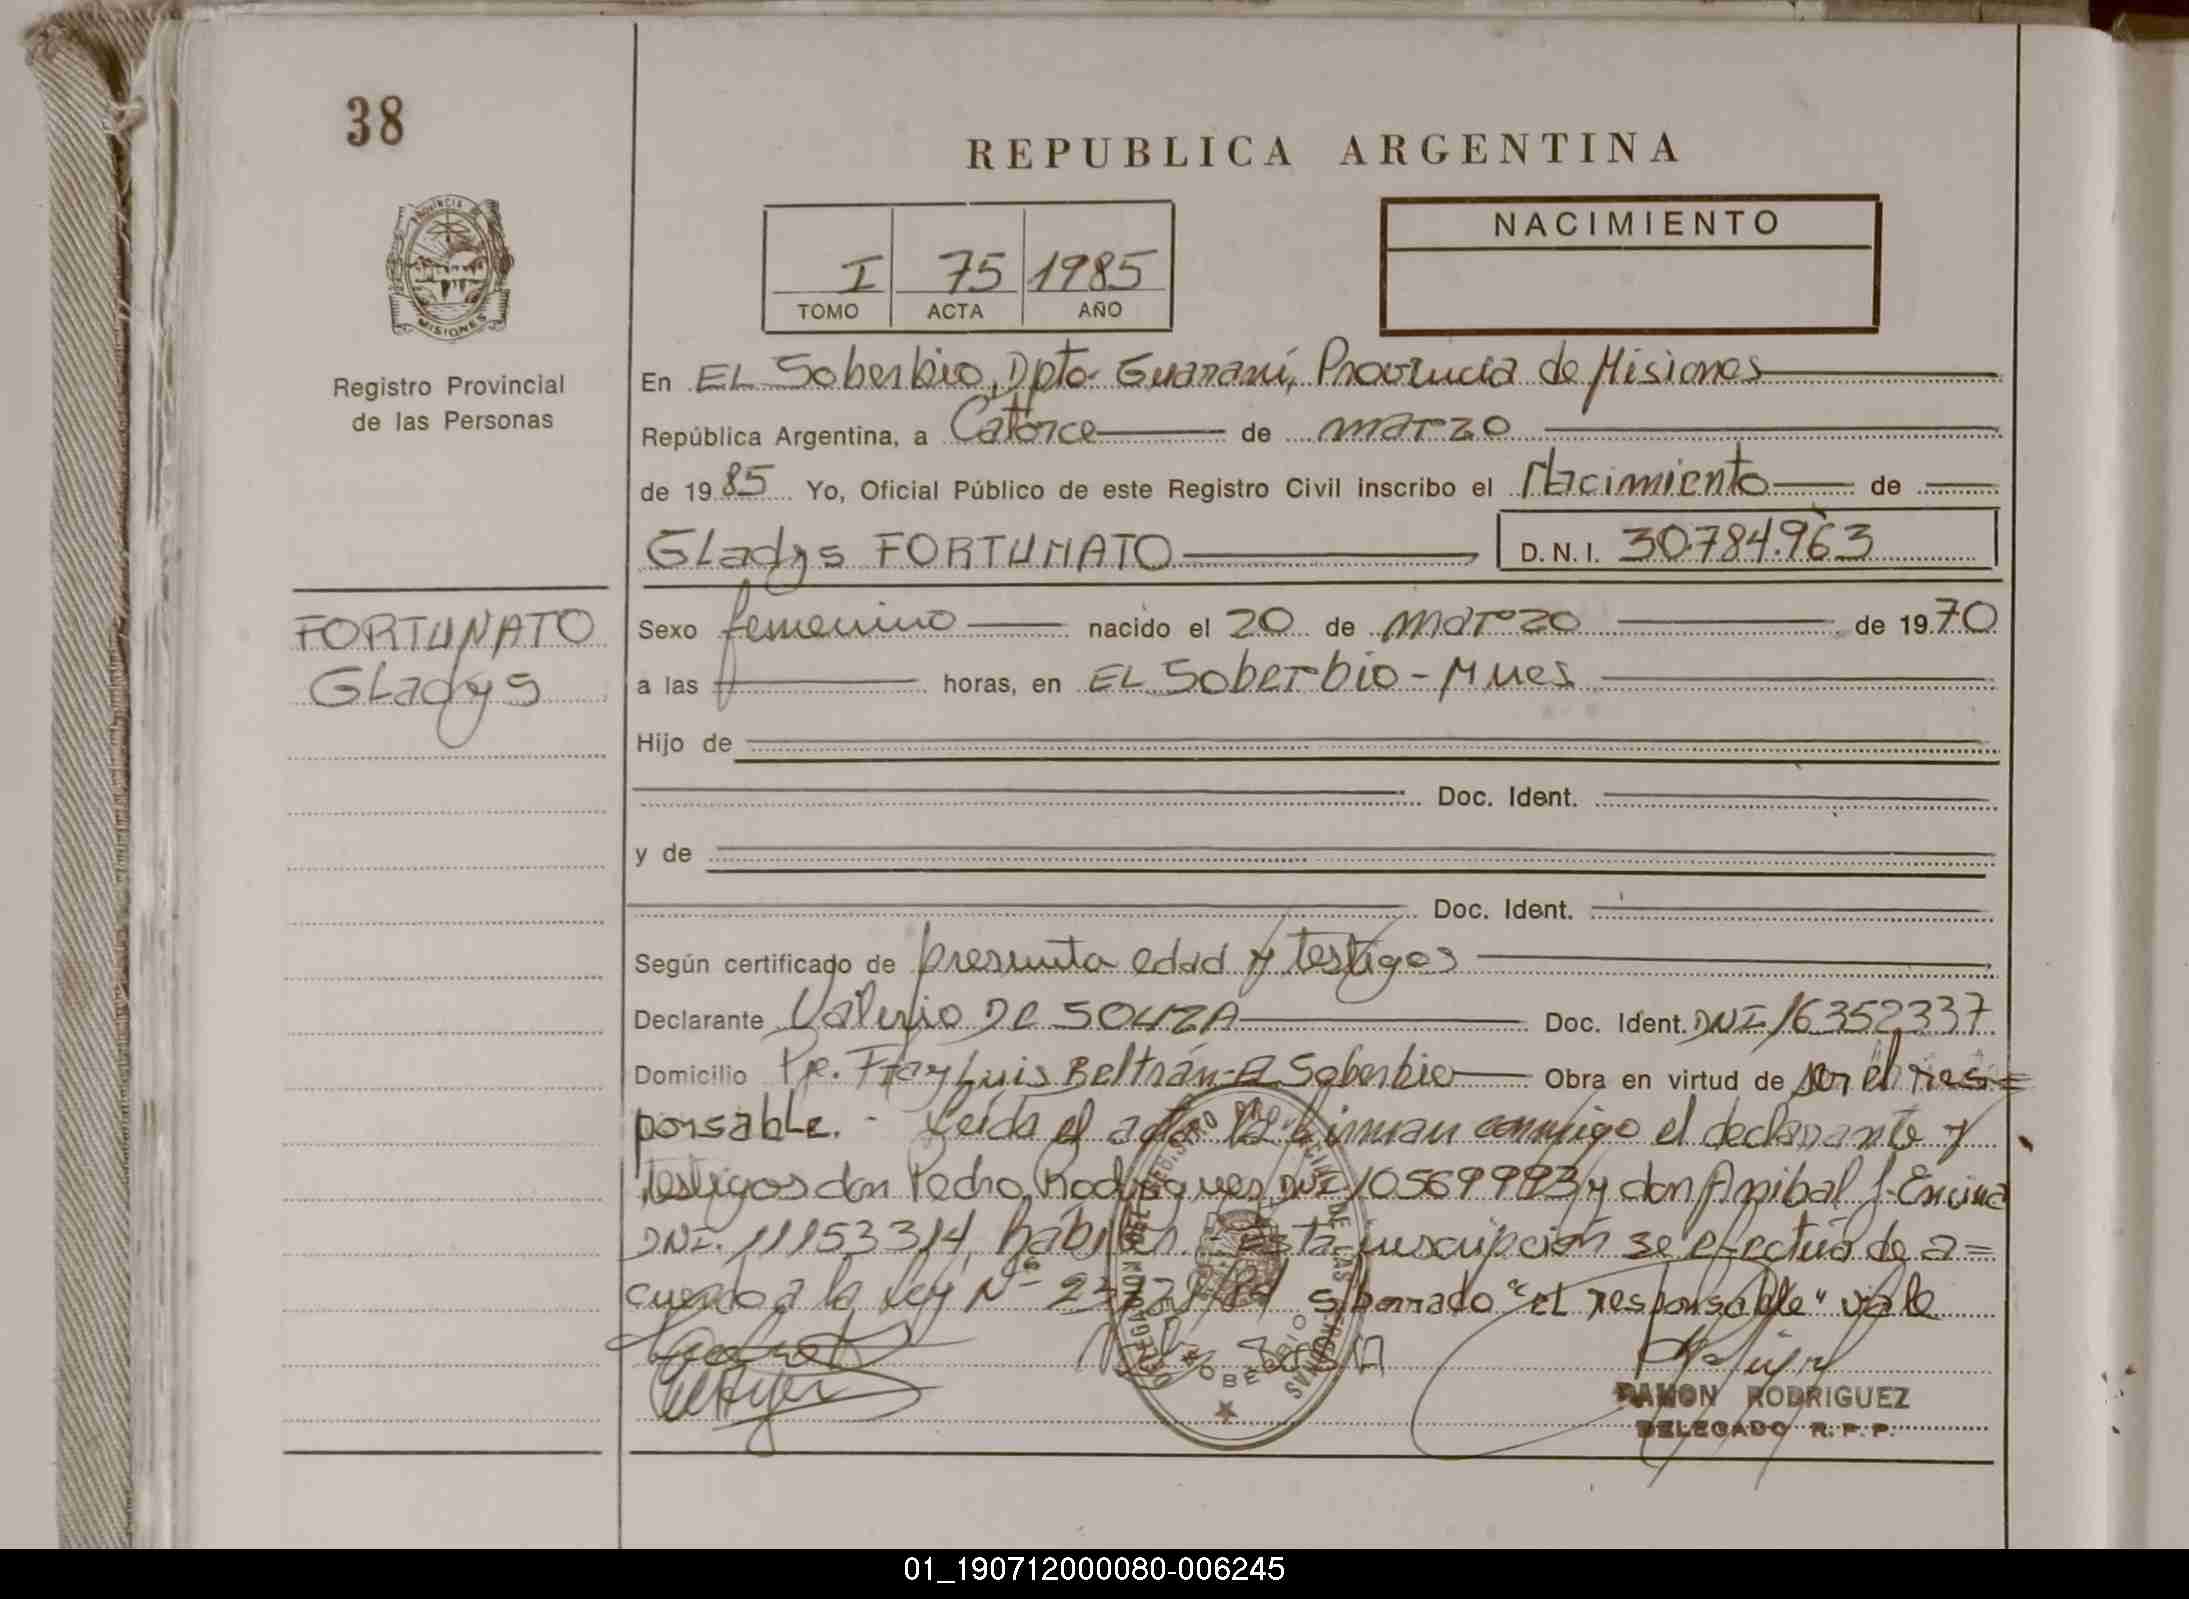 38
REPUBLICA ARGENTINA
PROVINCIA DE MISIONES
I 75 1985
TOMO ACTA AÑO
NACIMIENTO
Registro Provincial
de las Personas
En EL Soberbio, Dpto. Guaraní, Provincia de Misiones
República Argentina, a Catorce de marzo
de 1985 Yo, Oficial Público de este Registro Civil inscribo el Nacimiento de
Gladys FORTUNATO D.N.I. 30.784.963
FORTUNATO
Gladys
Sexo femenino nacido el 20 de marzo de 1970
a las horas, en EL Soberbio - Mnes
Hijo de
Doc. Ident.
y de
Doc. Ident.
Según certificado de presunta edad y testigos
Declarante Valerio DE SOUZA Doc. Ident. DNI 16352337
Domicilio Pje. Fray Luis Beltrán - El Soberbio Obra en virtud de ser el res=
ponsable. - Leída el acta la firman conmigo el declarante y
testigos don Pedro Rodrigues DNI 10569993 y don Anibal J. Encina
DNI. 11153314, hábiles. - Esta inscripción se efectúa de a=
cuerdo a la ley Nº S/borrado "el responsable" vale
REGISTRO PROVINCIAL DE LAS PERSONAS
DELEGACION
SOBERBIO
RAMON RODRIGUEZ
DELEGADO R.P.P.
01_190712000080-006245